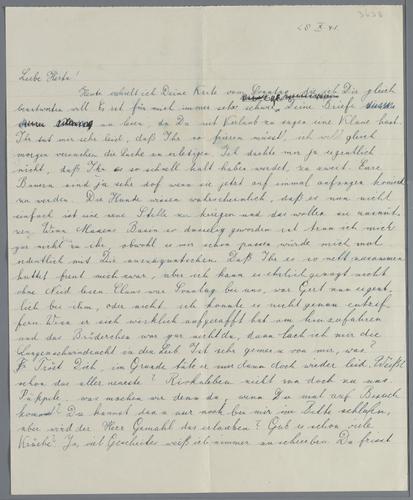 3638
28 X 41
Liebe Herta!
Heute erhielt ich Deine Karte vom Sonntag, die ich Dir gleich
beantworten will. Es ist für mich immer sehr schwer Deine Briefe
zu lesen, da Du mit Verlaub zu sagen eine Klaue hast.
Ihr tut mir sehr leid, daß Ihr so frieren müsst, ich will gleich
morgen versuchen die Sache zu erledigen. Ich dachte mir ja eigentlich
nicht, daß Ihr es so schnell kalt haben werdet, zu zweit. Eure
Bauern sind ja sehr doof wenn sie jetzt auf einmal anfangen komisch
zu werden. Die Hunde wissen wahrscheinlich, daß es nun nicht
einfach ist eine neue Stelle zu kriegen und das wollen sie ausnüt-
zen. Wenn Bauern so geworden ist kann ich mich
gar nicht zu ihr, obwohl es mir schon passen würde mich mal
ordentlich mit Dir auszuquatschen. Daß Ihr es so nett zusammen
habt freut mich zwar, aber ich kann es ehrlich gesagt nicht
ohne Neid lesen. Claus war Sonntag bei uns, war Gert nun eigent-
lich bei ihm, oder nicht. ich konnte es nicht genau entzif-
fern. Wenn er sich wirklich aufgerafft hat um hinzufahren
und das Brüderchen war gar nicht da, dann lach ich mir die
Lungenschwindsucht in den Leib. Ist sehr gemein von mir, was?
Tröst Dich, im Grunde täte er mir dann doch wieder leid. Weißt
schon das aller neueste? nicht von doch zu uns
Püppile, was machen wir denn da, wenn Du mal auf Besuch
kommst? Du kannst dann nur noch bei mir im Bette schlafen,
aber wird der Herr Gemahl das erlauben? Gab es schon viele
Kräche? Ja, viel Gescheites weiß ich nimmer zu schreiben. Du frierst